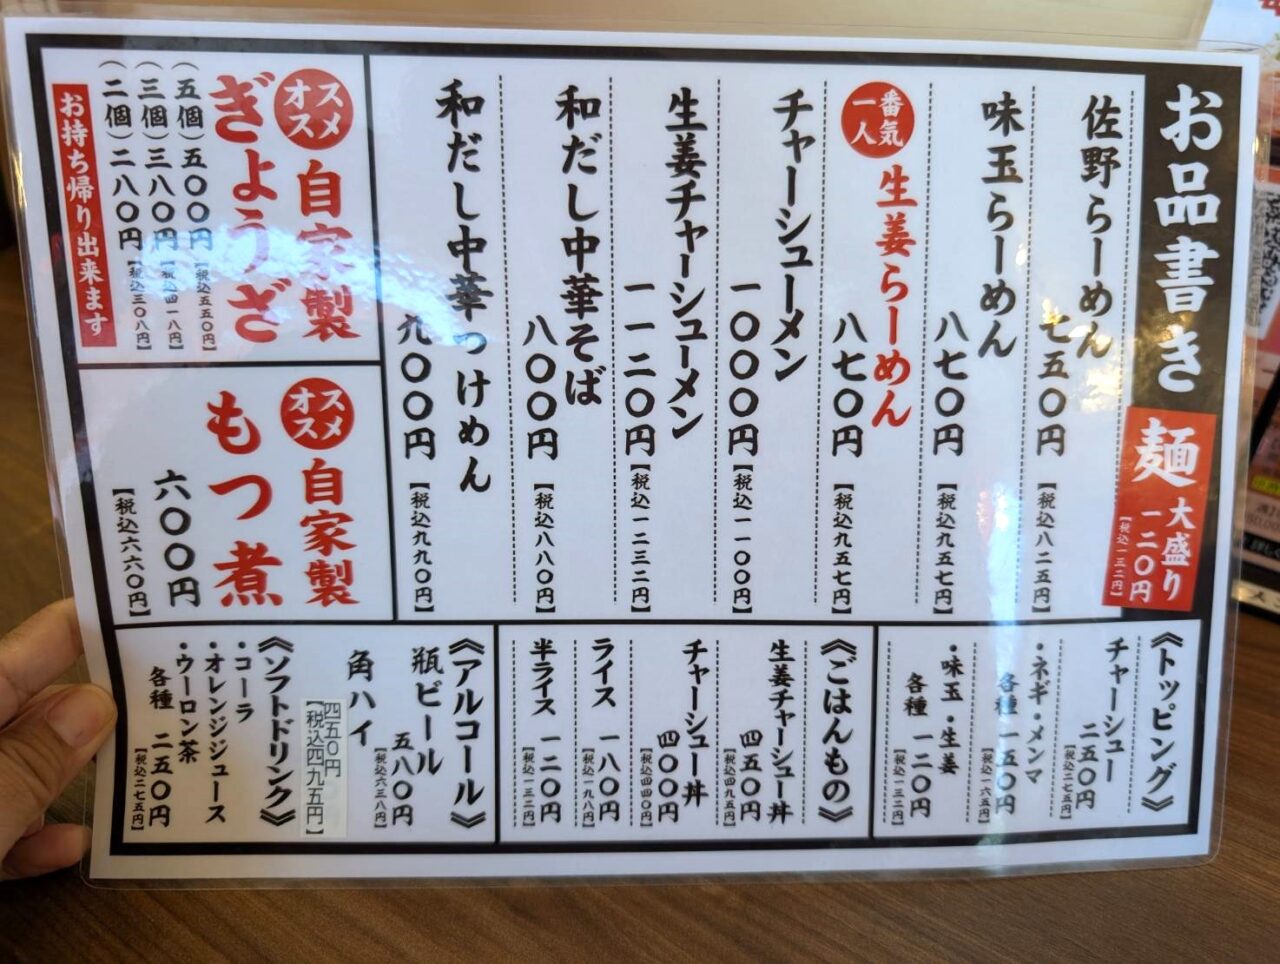 お品書き
麺
大盛り
一二〇円
【税込一三二円】
佐野らーめん
七五〇円
【税込八二五円】
味玉らーめん
八七〇円
【税込九五七円】
一番人気
生姜らーめん
八七〇円
【税込九五七円】
チャーシューメン
一〇〇〇円
【税込一一〇〇円】
生姜チャーシューメン
一一二〇円
【税込一二三二円】
和だし中華そば
八〇〇円
【税込八八〇円】
和だし中華つけめん
九〇〇円
【税込九九〇円】
オススメ
自家製
ぎょうざ
(五個)五〇〇円【税込五五〇円】
(三個)三八〇円【税込四一八円】
(二個)二八〇円【税込三〇八円】
お持ち帰り出来ます
オススメ
自家製
もつ煮
六〇〇円
【税込六六〇円】
《トッピング》
チャーシュー
二五〇円
【税込二七五円】
・ネギ・メンマ
各種 一五〇円
【税込一六五円】
・味玉・生姜
各種 一二〇円
【税込一三二円】
《ごはんもの》
生姜チャーシュー丼
四五〇円
【税込四九五円】
チャーシュー丼
四〇〇円
【税込四四〇円】
ライス 一八〇円
【税込一九八円】
半ライス 一二〇円
【税込一三二円】
《アルコール》
瓶ビール
五八〇円
【税込六三八円】
角ハイ
四五〇円
【税込四九五円】
《ソフトドリンク》
・コーラ
・オレンジジュース
・ウーロン茶
各種 二五〇円
【税込二七五円】